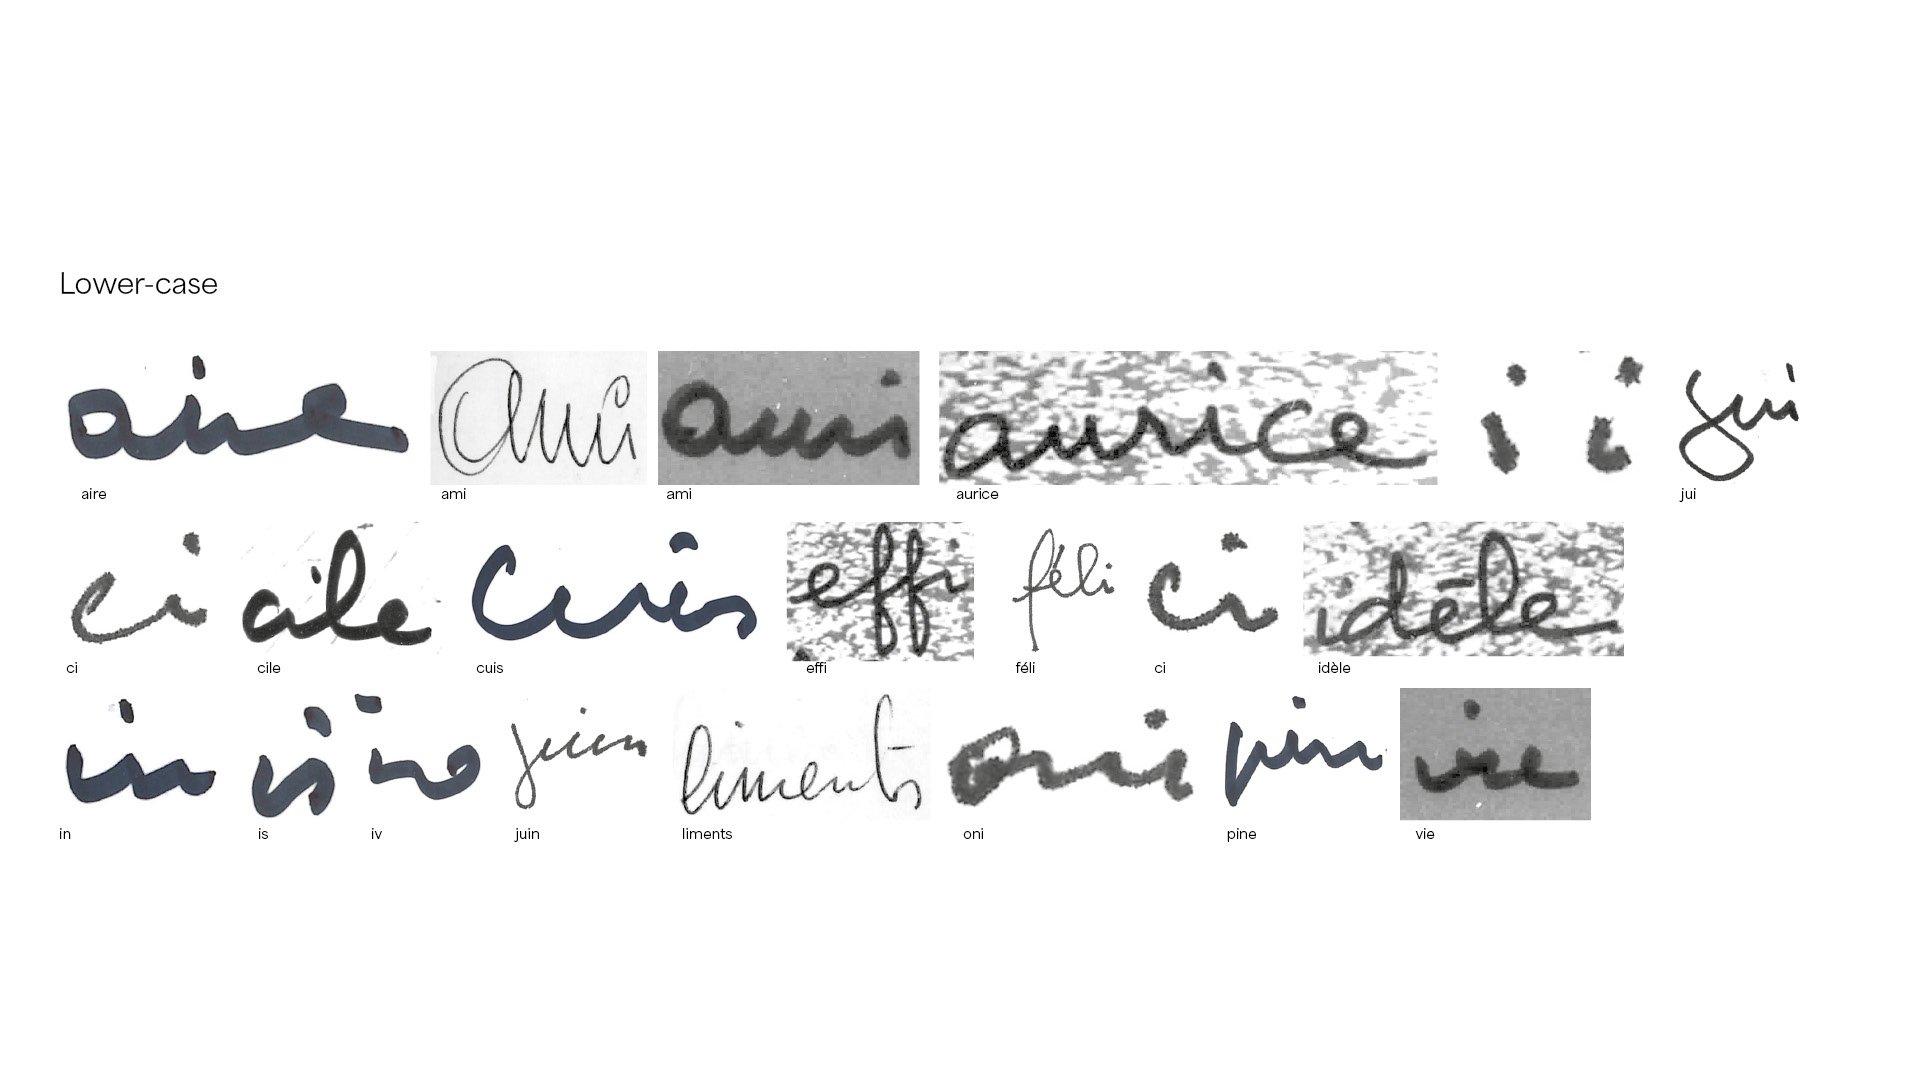 Lower-case
aire ami ami aurice i i jui
aire ami ami aurice jui
ci cile cuis effi féli ci idèle
ci cile cuis effi féli ci idèle
in is iv juin liments oni pin vie
in is iv juin liments oni pine vie